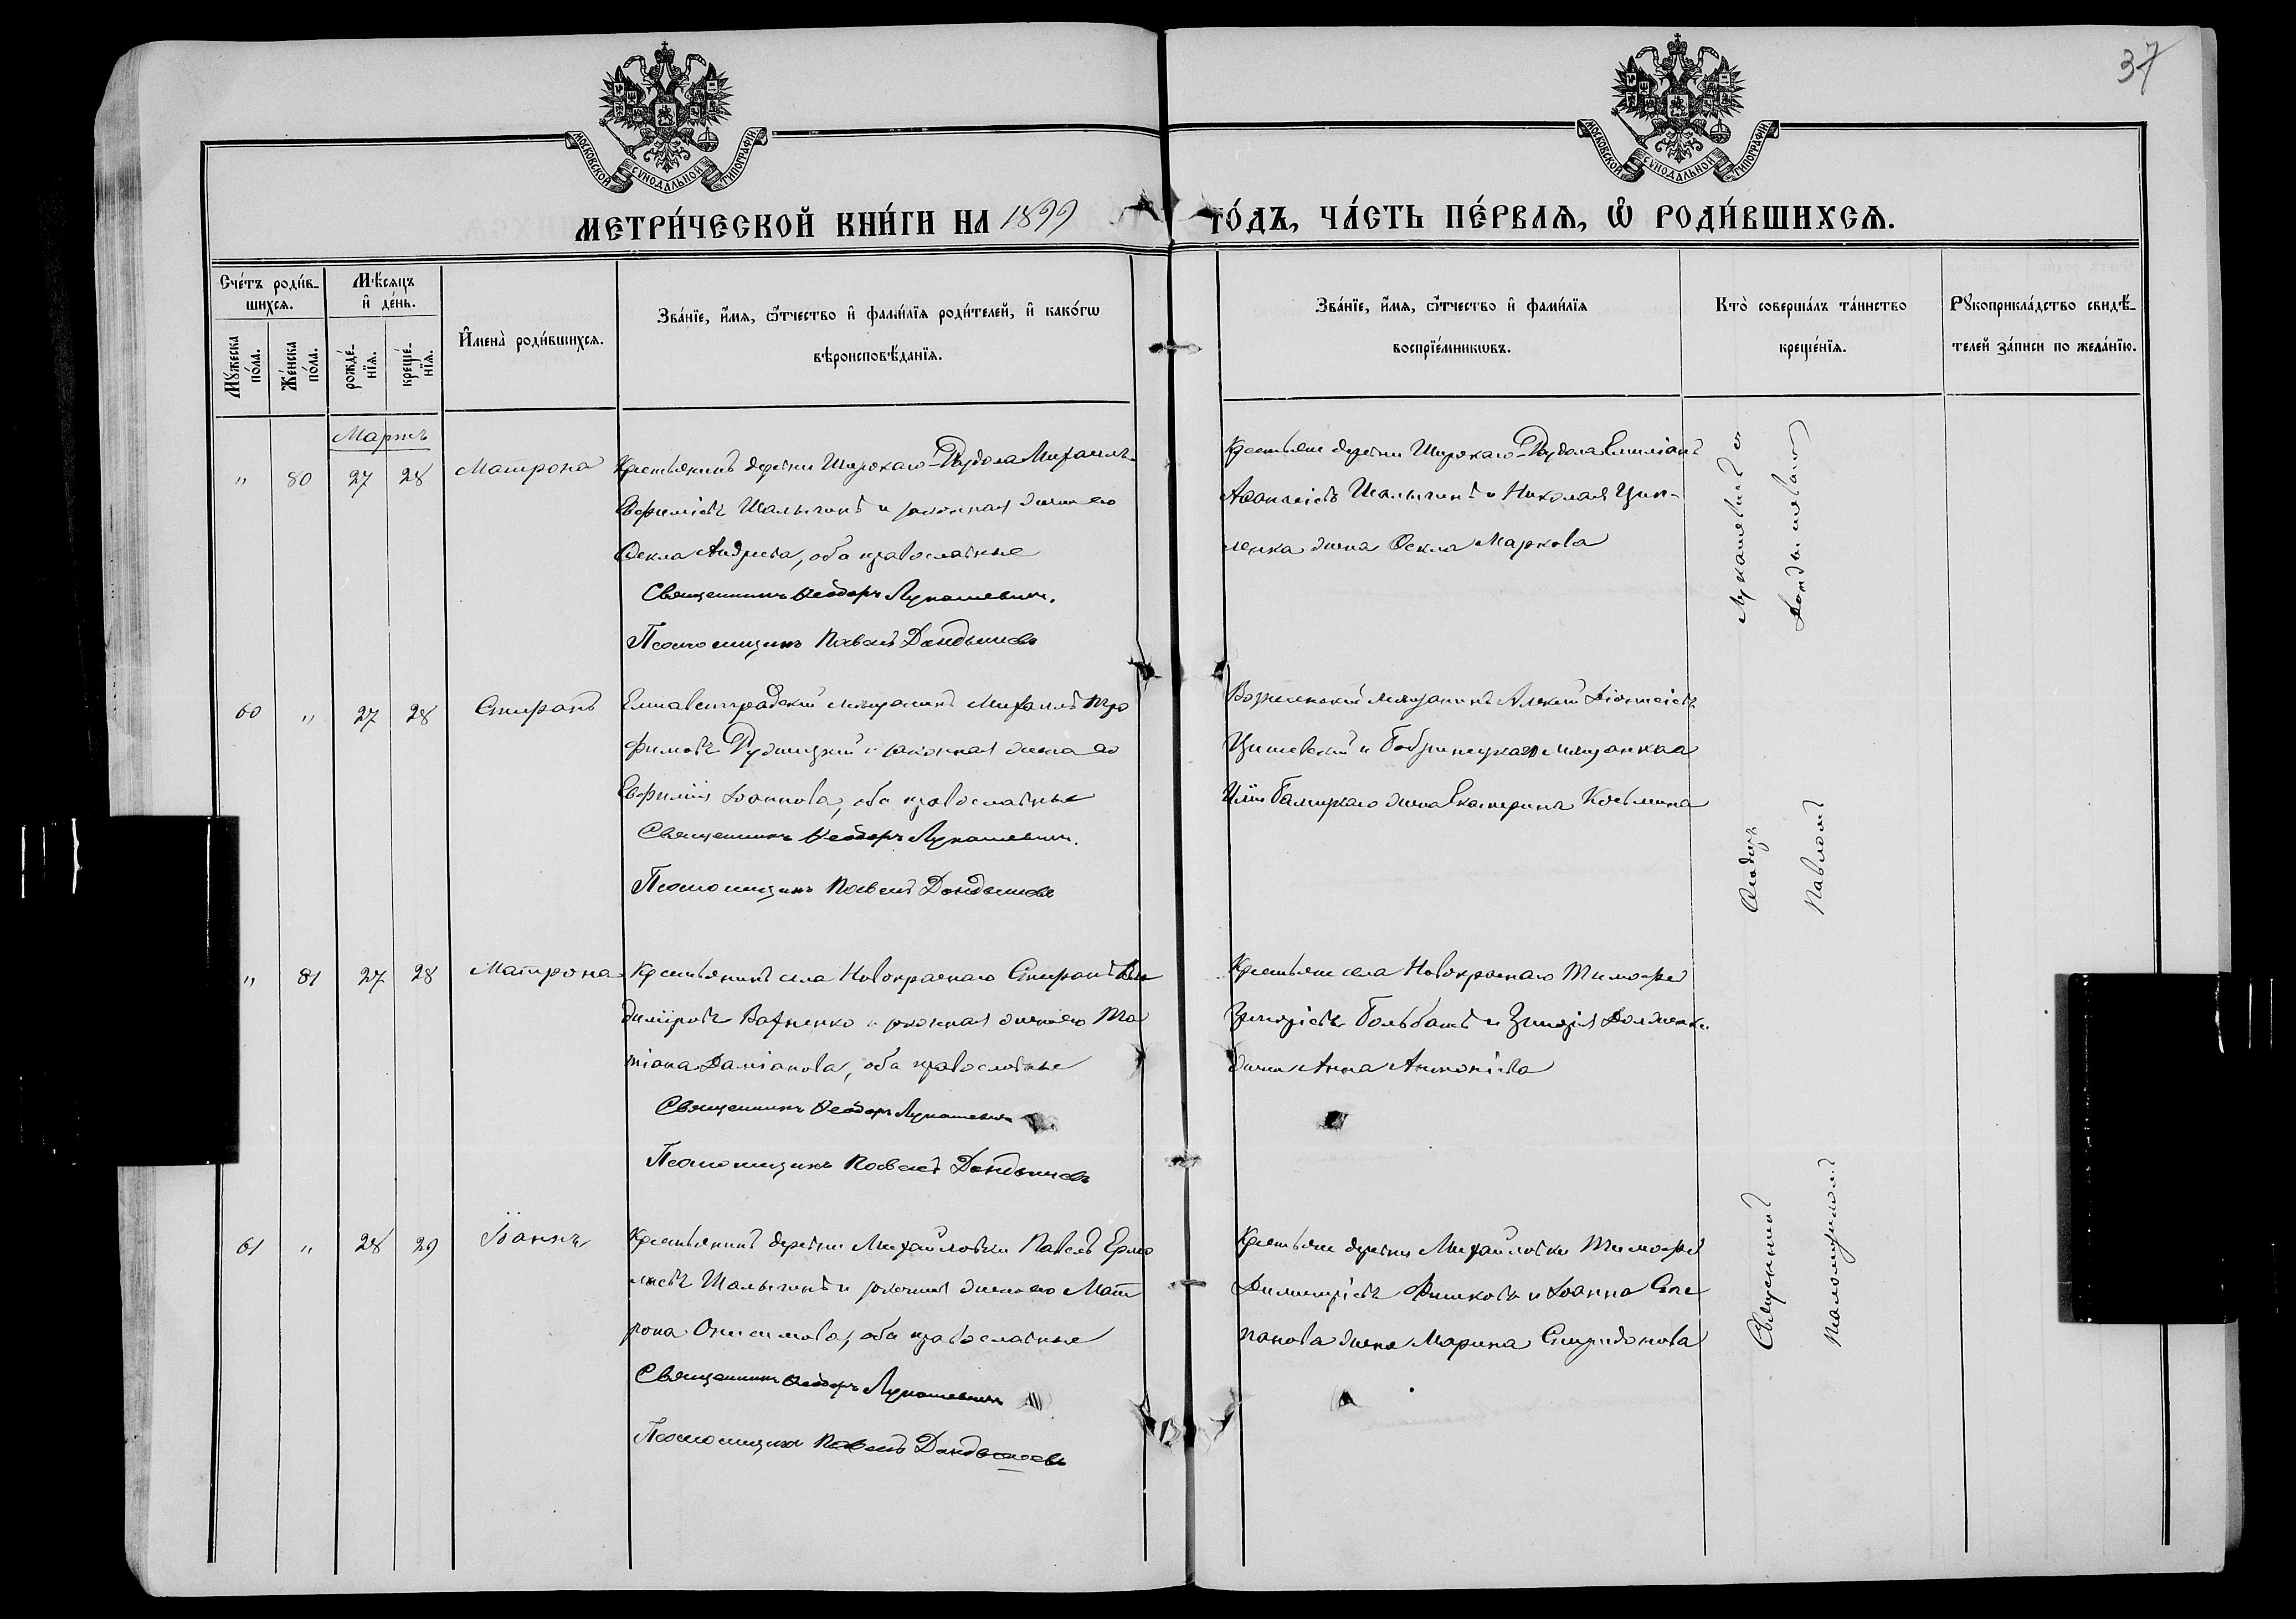 37
МОСКОВСКОЙ СѴНОДАЛЬНОЙ ТИПОГРАФІИ.
МОСКОВСКОЙ СѴНОДАЛЬНОЙ ТИПОГРАФІИ.
МЕТРИ́ЧЕСКОЙ КНИ́ГИ НА 1899 ГО́ДЪ, ЧА́СТЬ ПЕ́РВАѦ, Ѽ РОДИ́ВШИХСѦ.
Сче́тъ роди́в-
шихсѧ.
Мꙋ́жеска по́ла.
Же́нска по́ла.
Мѣ́сѧцъ
и҆ де́нь.
рожде́-
нїѧ.
креще́-
нїѧ.
И҆мена̀ роди́вшихсѧ.
Зва́нїе, и҆́мѧ, ѻ҆́тчество и҆ фами́лїѧ роди́телей, и҆ како́гѡ
вѣроисповѣ́данїѧ.
Зва́нїе, и҆́мѧ, ѻ҆́тчество и҆ фами́лїѧ
воспрїе́мникѡвъ.
Кто̀ соверша́лъ та́инство
креще́нїѧ.
Рꙋкоприкла́дство свидѣ́-
телей за́писи по жела́нїю.
Мартъ
" 80 27 28 Матрона
Крестьянинъ деревни Широкаго-Раздола Михаилъ
Евфиміевъ Шалыгинъ и законная жена его
Ѳекла Андреева, оба православные
Священникъ Ѳеодоръ Лукашевичъ.
Псаломщикъ Павелъ Дандышевъ
Крестьяне деревни Широкаго-Раздола Емиліанъ
Аѳанасіевъ Шалыгинъ и Николая
ленка жена Ѳекла Маркова
60 " 27 28 Стефанъ
Елисаветградскій мѣщанинъ Михаилъ Тро
фимовъ Рудницкій и законная жена его
Евфимія Іоаннова, оба православные
Священникъ Ѳеодоръ Лукашевичъ.
Псаломщикъ Павелъ Дандышевъ
мѣщанинъ Алексій
и Бобринецкаго мѣщанина
Иліи жена Екатерина Косьмина
" 81 27 28 Матрона
Крестьянинъ села Новокраснаго Стефанъ Вла
диміровъ и законная жена его Та
тіана Даміанова, оба православные
Священникъ Ѳеодоръ Лукашевичъ
Псаломщикъ Павелъ Дандышевъ
Крестьяне села Новокраснаго Тимоѳей
Григоріевъ и Григорія
жена Анна Антоніева
61 " 28 29 Іоаннъ
Крестьянинъ деревни Михайловки Павелъ Ермо
лаевъ Шалыгинъ и законная жена его Мат
рона Онисимова, оба православные
Священникъ Ѳеодоръ Лукашевичъ
Псаломщикъ Павелъ Дандышевъ
Крестьяне деревни Михайловки Тимоѳей
Димитріевъ и Іоанна Сте
панова жена Марина Спиридонова
Священникъ Ѳеодоръ Лукашевичъ съ
псаломщикомъ Павломъ Дандышевымъ